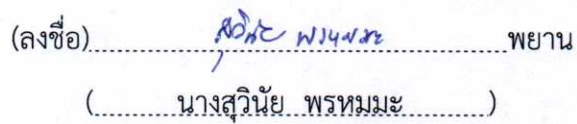 (ลงชื่อ) สุวินัย พรหมมะ พยาน
(นางสุวินัย พรหมมะ)